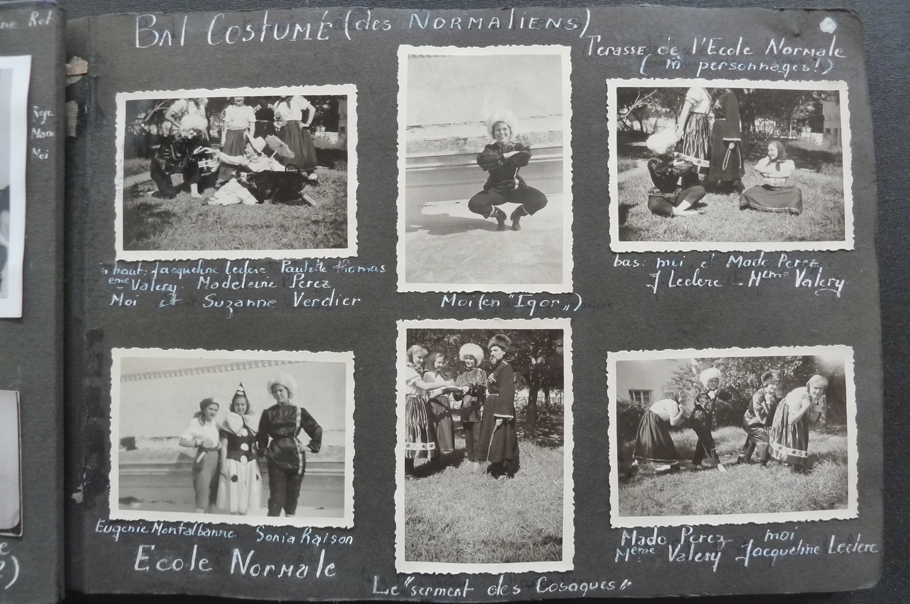 BAL COSTUMÉ (des NORMALIENS)
Terasse de l'Ecole Normale
(m̂ personnages!)
haut: Jacqueline Leclerc Paulette
eme Valery Madeleine Perez
Moi et Suzanne Verdier
Moi (en "Igor")
bas: moi et Mado Perez
J Leclerc - Meme Valery
Eugenie Montalbanne. Sonia Raison
Ecole NORMALE
Le "serment des Cosaques"
Mado Perez - moi
Meme Valery - Jacqueline Leclerc